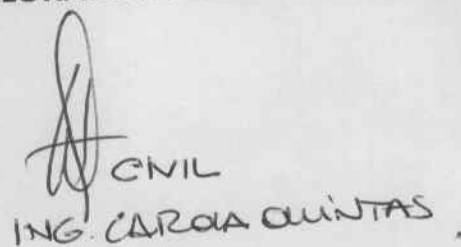 CIVIL
ING. CAROLA QUINTAS